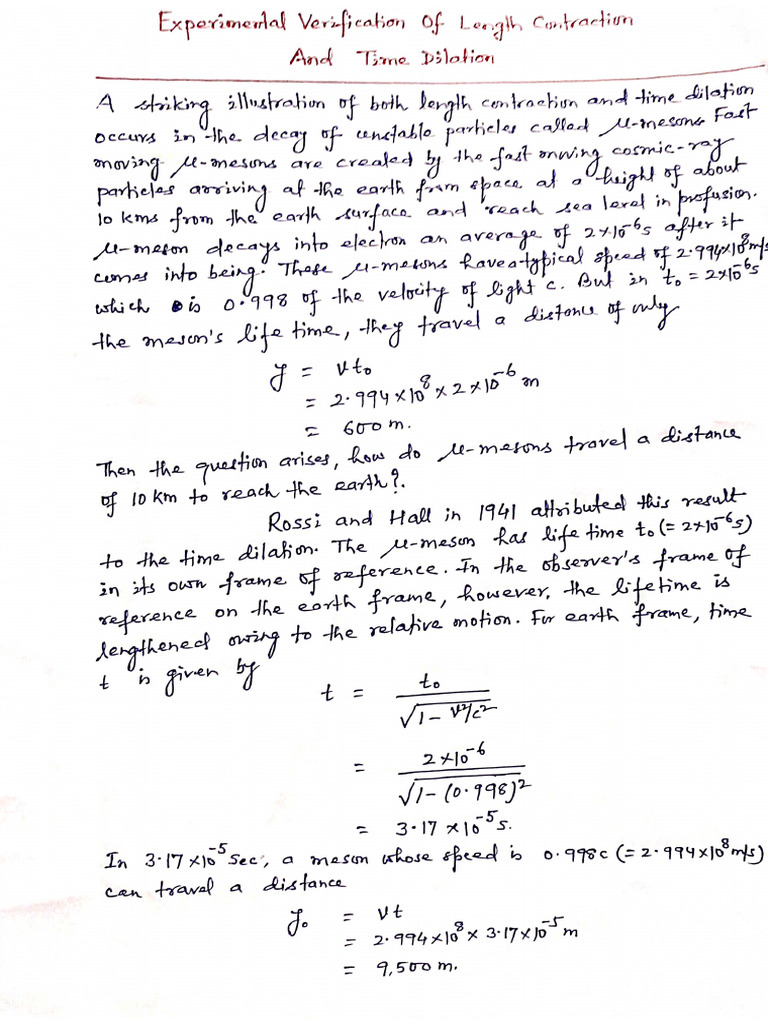 Experimental Verification Of Length Contraction
And Time Dilation
A striking illustration of both length contraction and time dilation
occurs in the decay of unstable particles called μ-mesons Fast
moving μ-mesons are created by the fast moving cosmic-ray
particles arriving at the earth from space at a height of about
10 kms from the earth surface and reach sea level in profusion.
μ-meson decays into electron an average of 2×10⁻⁶s after it
comes into being. These μ-mesons have a typical speed of 2.994×10⁸m/s
which is 0.998 of the velocity of light c. But in t₀ = 2×10⁻⁶s
the meson's life time, they travel a distance of only
y = vt₀
= 2.994×10⁸×2×10⁻⁶ m
= 600 m.
Then the question arises, how do μ-mesons travel a distance
of 10 km to reach the earth?.
Rossi and Hall in 1941 attributed this result
to the time dilation. The μ-meson has life time t₀ (= 2×10⁻⁶s)
in its own frame of reference. In the observer's frame of
reference on the earth frame, however, the lifetime is
lengthened owing to the relative motion. For earth frame, time
t is given by
t = t₀ / √1 - v²/c²
= 2×10⁻⁶ / √1-(0.998)²
= 3.17 ×10⁻⁵s.
In 3.17×10⁻⁵ Sec, a meson whose speed is 0.998c (= 2.994×10⁸m/s)
can travel a distance
y₀ = vt
= 2.994×10⁸ × 3.17×10⁻⁵ m
= 9,500 m.